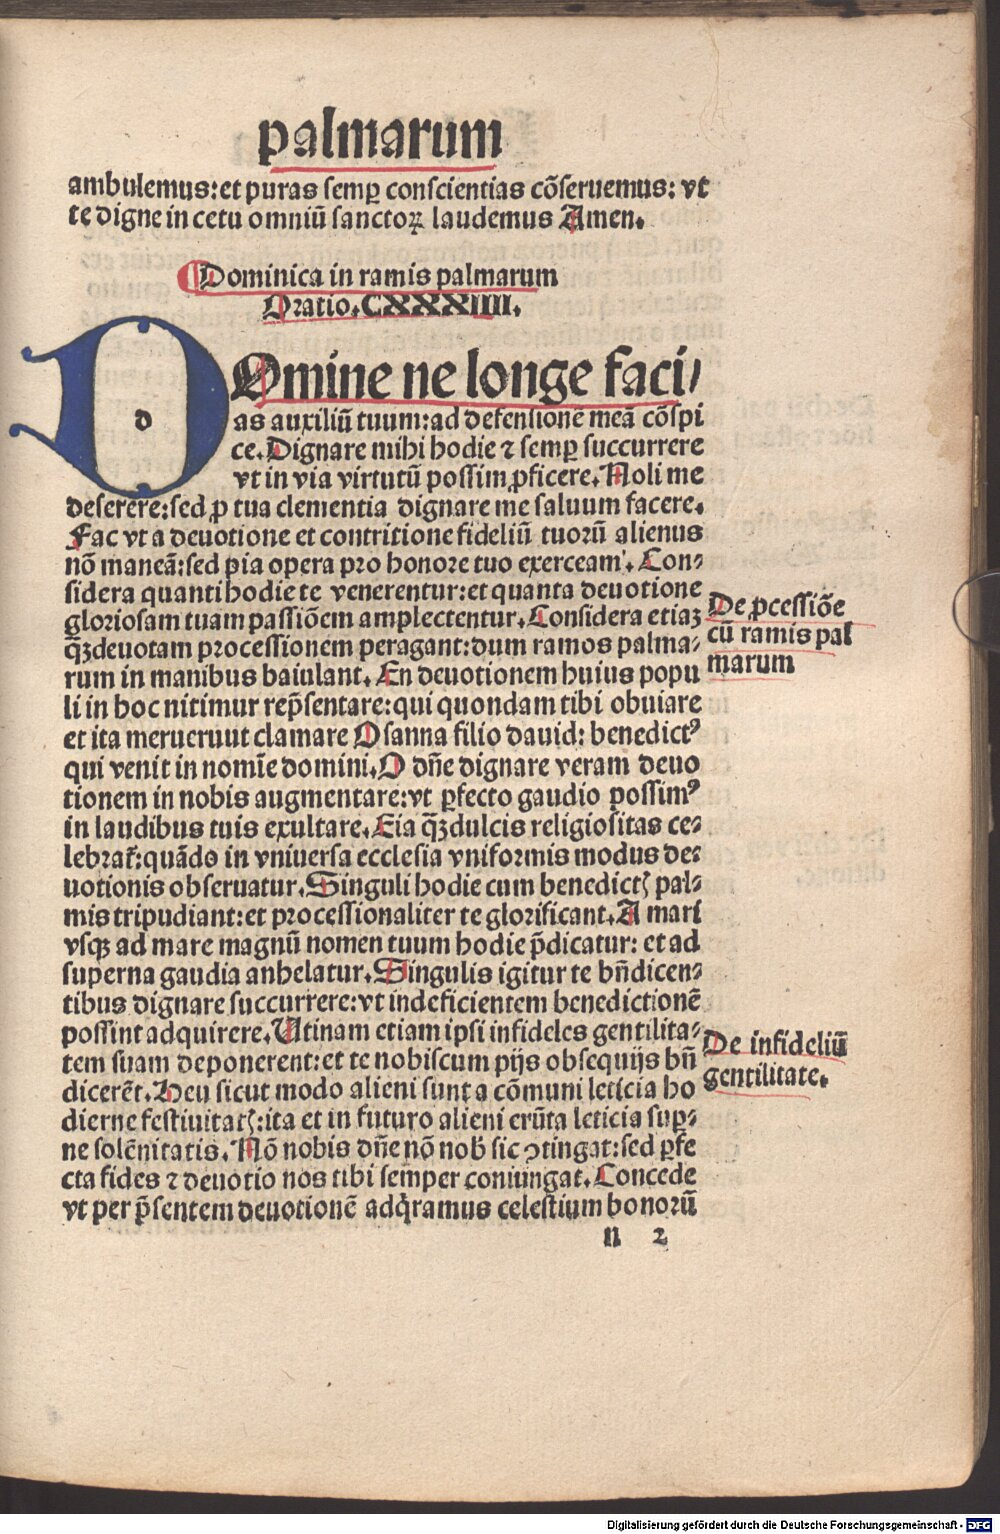 palmarum
ambulemus: et puras semꝑ conscientias cōseruemus: vt
te digne in cetu omniū sanctoꝝ laudemus Amen.
¶ Dominica in ramis palmarum
Oratio. CXXXIIII.
d
DOmine ne longe faci/
as auxiliū tuum: ad defensionē meā cōspi
ce. Dignare mihi hodie ⁊ semꝑ succurrere
vt in via virtutū possim ꝓficere. Noli me
deserere: sed ꝓ tua clementia dignare me saluum facere.
Fac vt a deuotione et contritione fideliū tuorū alienus
nō maneā: sed pia opera pro honore tuo exerceam'. Con⸗
sidera quanti hodie te venerentur: et quanta deuotione
gloriosam tuam passiōem amplectentur. Considera etiaꝫ
q̄ꝫ deuotam processionem peragant: dum ramos palma⸗
rum in manibus baiulant. En deuotionem huius popu
li in hoc nitimur rep̄sentare: qui quondam tibi obuiare
et ita meruerunt clamare Osanna filio dauid: benedictꝰ
qui venit in nomīe domini. O dn̄e dignare veram deuo
tionem in nobis augmentare: vt ꝑfecto gaudio possimꝰ
in laudibus tuis exultare. Eia q̄ꝫ dulcis religiositas ce⸗
lebrat̄: quādo in vniuersa ecclesia vniformis modus de⸗
uotionis obseruatur. Singuli hodie cum benedictꝭ pal⸗
mis tripudiant: et processionaliter te glorificant. A mari
vsqꝫ ad mare magnū nomen tuum hodie p̄dicatur: et ad
superna gaudia anhelatur. Singulis igitur te bn̄dicen⸗
tibus dignare succurrere: vt indeficientem benedictionē
possint adquirere. Utinam etiam ipsi infideles gentilita⸗
tem suam deponerent: et te nobiscum pijs obsequijs bn̄
dicerēt. Heu sicut modo alieni sunt a cōmuni leticia ho
dierne festiuitatꝭ: ita et in futuro alieni erūt a leticia suꝑ⸗
ne solēnitatis. Nō nobis dn̄e nō nob̄ sic ꝯtingat: sed ꝑfe
cta fides ⁊ deuotio nos tibi semper coniungat. Concede
vt per p̄sentem deuotionē adq̄ramus celestium bonorū
n 2
De ꝓcessiōe
cū ramis pal
marum
De infideliū
gentilitate.
Digitalisierung gefördert durch die Deutsche Forschungsgemeinschaft - DFG